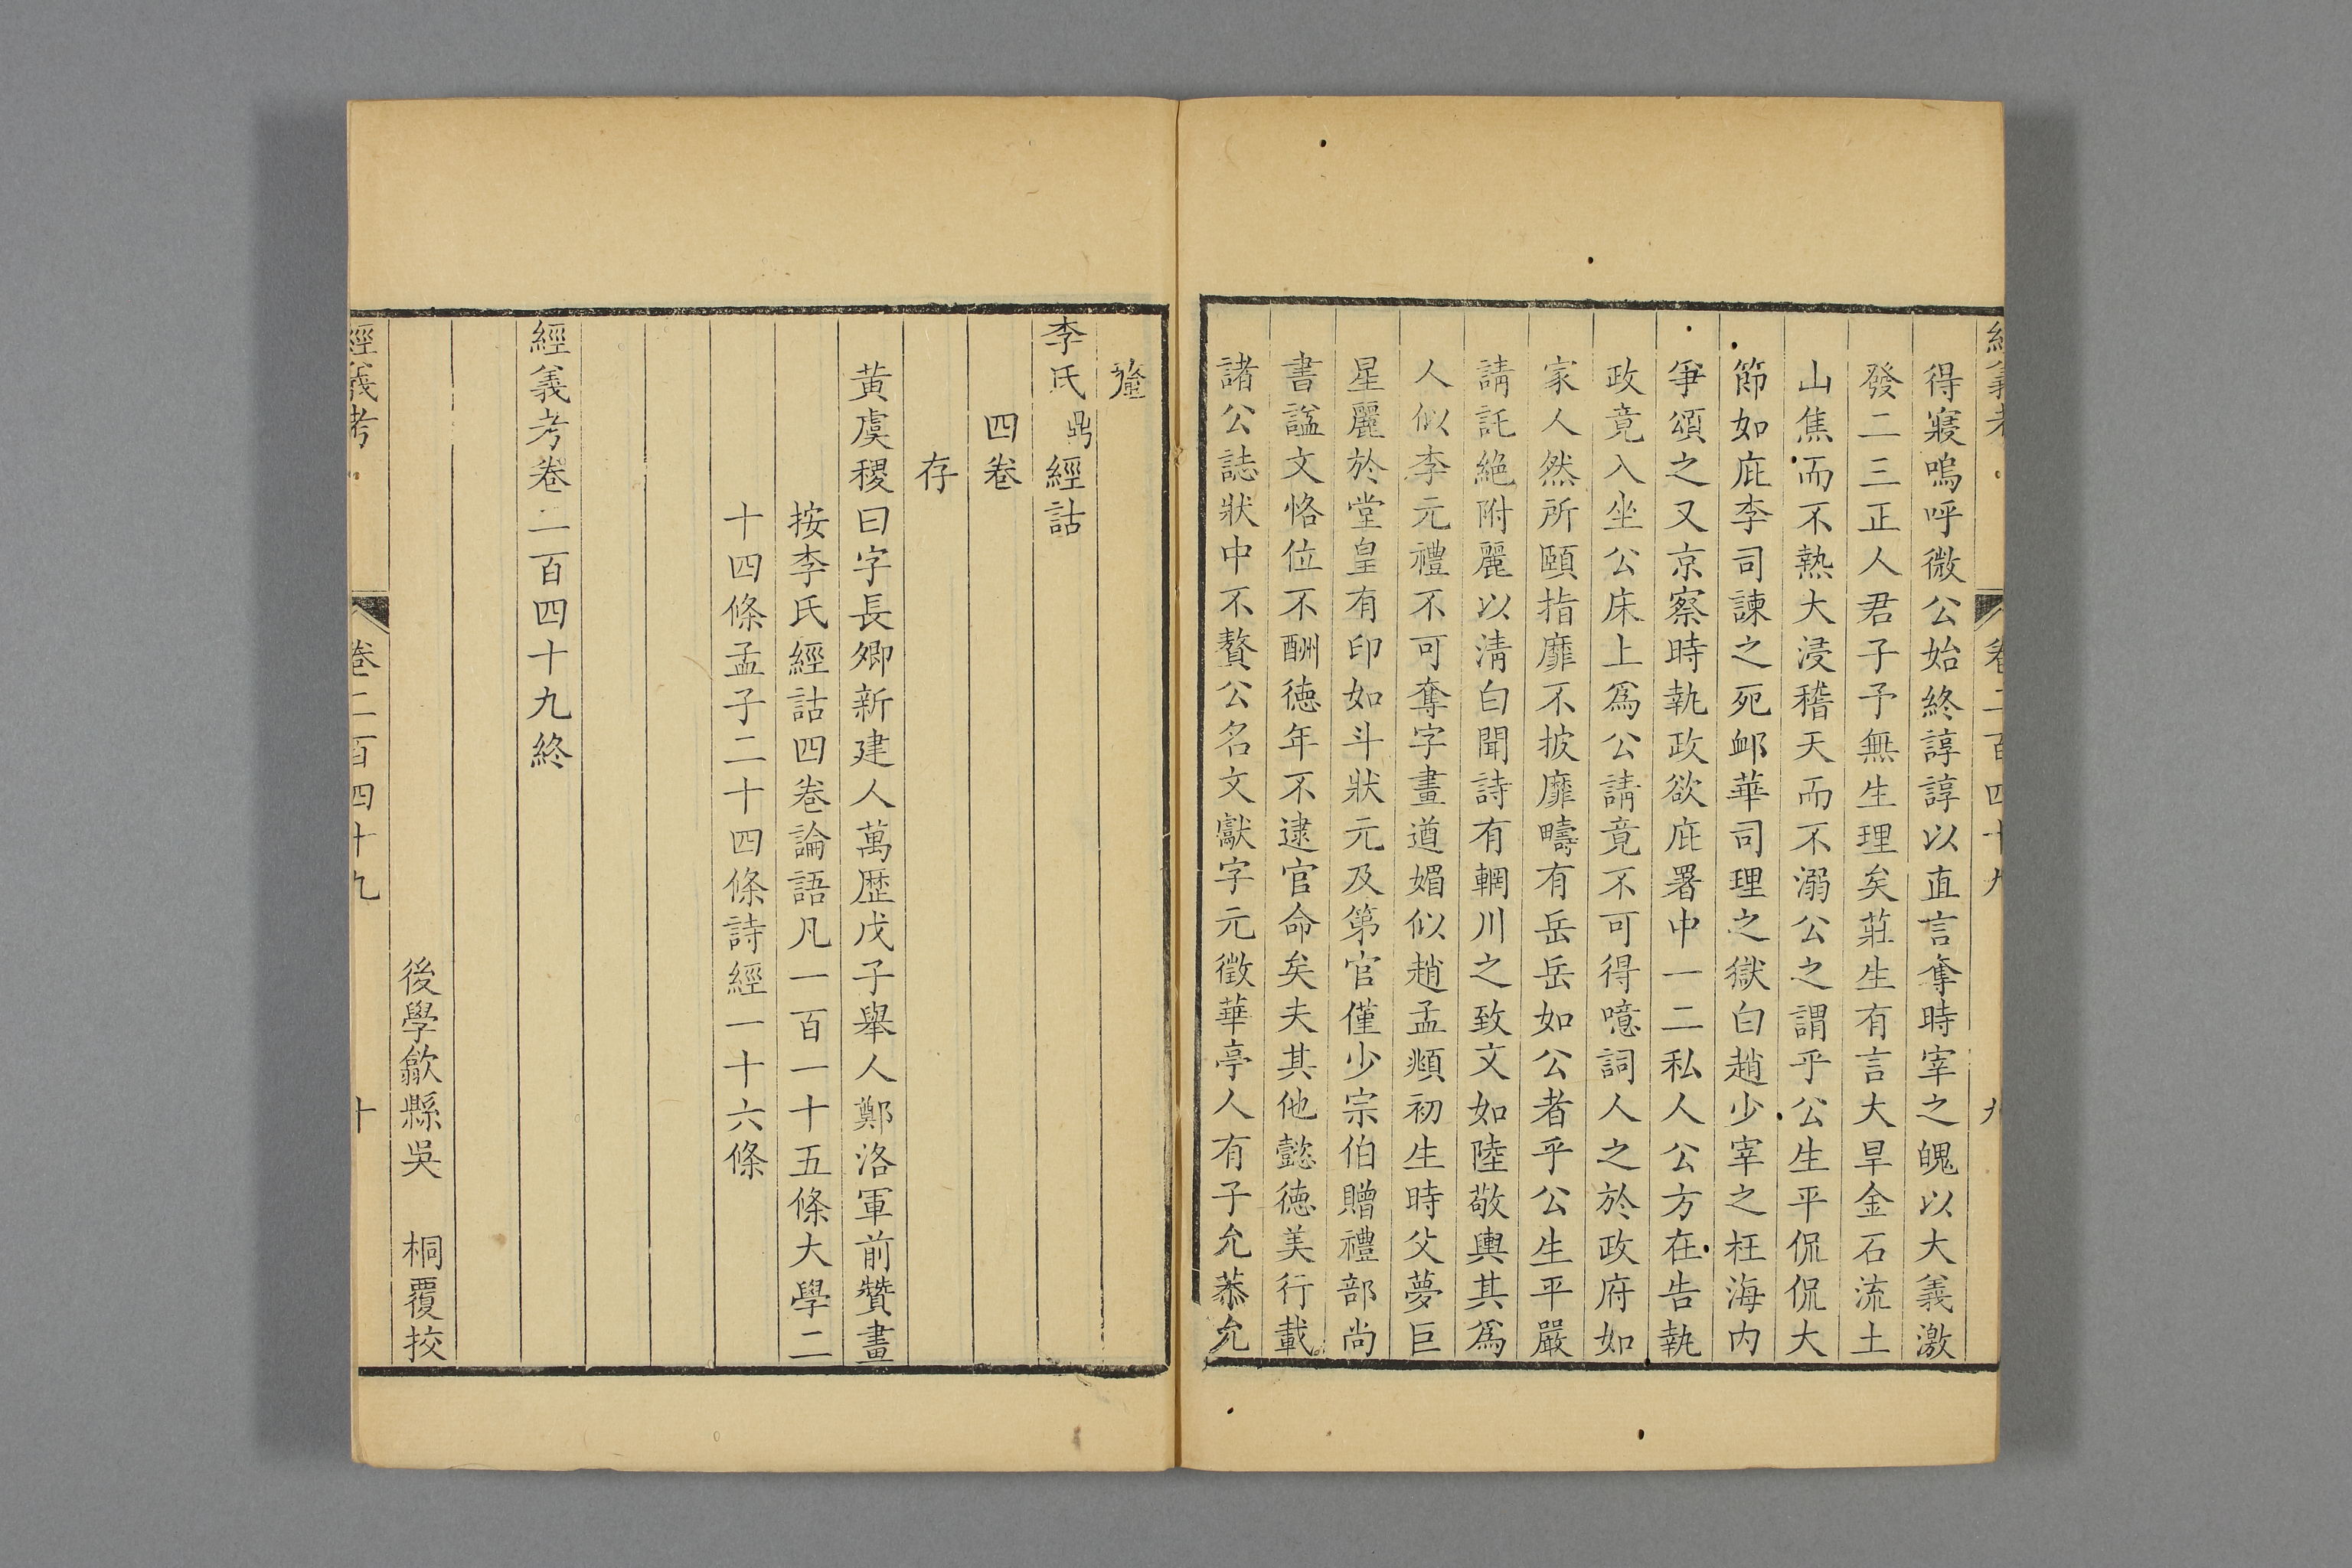 經義考 卷二百四十九 九
得寢嗚呼微公始終諄諄以直言奪時宰之魄以大義激
發二三正人君子予無生理矣莊生有言大旱金石流土
山焦而不熱大浸稽天而不溺公之謂乎公生平侃侃大
節如庇李司諫之死䘏華司理之獄白趙少宰之枉海内
爭頌之又京察時執政欲庇署中一二私人公方在告執
政竟入坐公床上爲公請竟不可得噫詞人之於政府如
家人然所頤指靡不披靡疇有岳岳如公者乎公生平嚴
請託絶附麗以淸白聞詩有輞川之致文如陸敬輿其爲
人似李元禮不可奪字畫遒媚似趙孟頫初生時父夢巨
星麗於堂皇有印如斗狀元及第官僅少宗伯贈禮部尚
書謚文恪位不酬德年不逮官命矣夫其他懿德美行載
諸公誌狀中不贅公名文獻字元徵華亭人有子允恭允
鎣
李氏鼎經詁
四卷
存
黄虞稷曰字長卿新建人萬歷戊子舉人鄭洛軍前贊畫
按李氏經詁四卷論語凡一百一十五條大學二
十四條孟子二十四條詩經一十六條
經義考卷二百四十九終
後學歙縣吳 桐覆挍
經義考 卷二百四十九 十